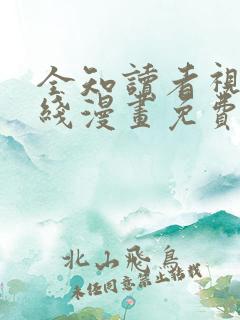 全知讀者視
綫漫畫免費
北山飛鳥
未經同意禁止轉載